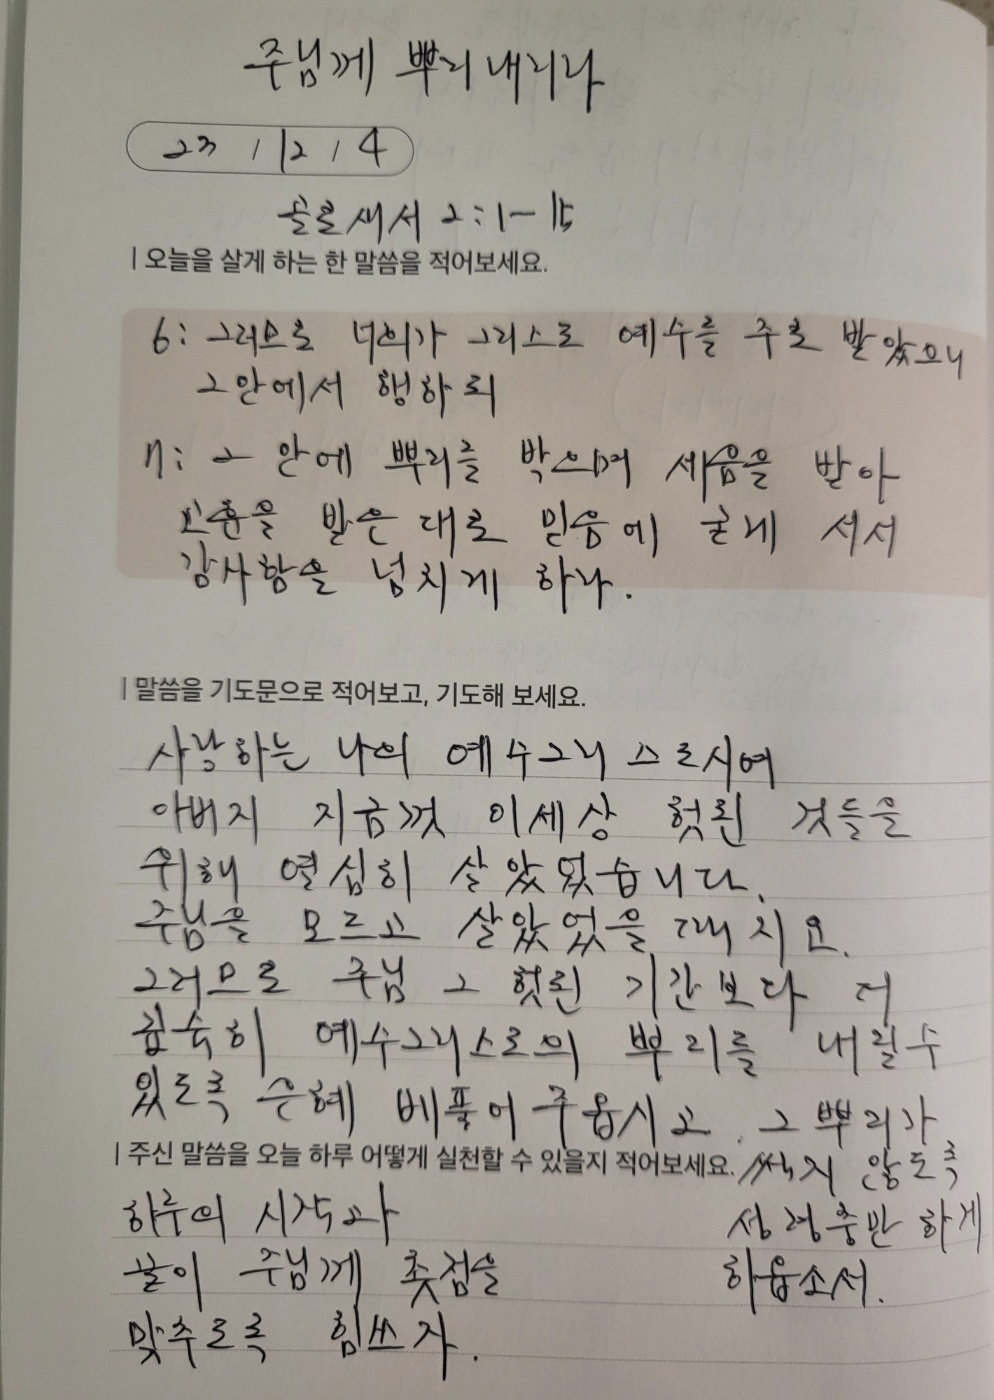 주님께 뿌리내리라
23 / 12 / 4
골로새서 2:1-15
| 오늘을 살게 하는 한 말씀을 적어보세요.
6: 그러므로 너희가 그리스도 예수를 주로 받았으니
그안에서 행하되
7: 그 안에 뿌리를 박으며 세움을 받아
교훈을 받은 대로 믿음에 굳게 서서
감사함을 넘치게 하라.
| 말씀을 기도문으로 적어보고, 기도해 보세요.
사랑하는 나의 예수그리스도시여
아버지 지금껏 이세상 헛된 것들을
위해 열심히 살았었습니다.
주님을 모르고 살았었을 때지요.
그러므로 주님 그 헛된 기간보다 더
깊숙히 예수그리스도의 뿌리를 내릴수
있도록 은혜 베풀어 주옵시고, 그 뿌리가
| 주신 말씀을 오늘 하루 어떻게 실천할 수 있을지 적어보세요. 썩지 않도록
하루의 시작과 성령충만 하게
끝이 주님께 촛점을 하옵소서.
맞추도록 힘쓰자.